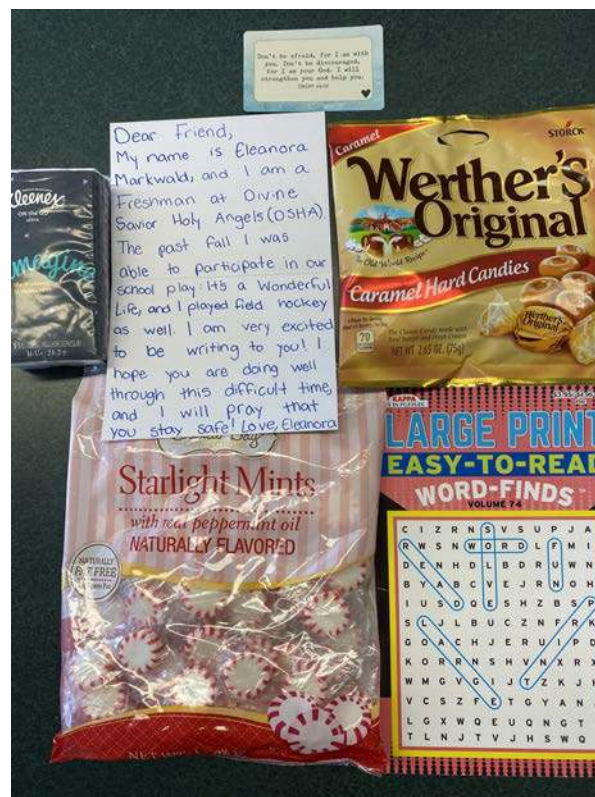 Don't be afraid, for I am with
you. Don't be discouraged,
for I am your God. I will
strengthen you and help you.
Dear Friend,
My name is Eleanora
Markwald, and I am a
Freshman at Divine
Savior Holy Angels (DSHA).
The past fall I was
able to participate in our
school play: It's a Wonderful
Life, and I played field hockey
as well. I am very excited
to be writing to you! I
hope you are doing well
through this difficult time,
and I will pray that
you stay safe! Love, Eleanora
Kleenex
ON THE GO
Caramel
STORCK
Werther's
Original
Caramel Hard Candies
70
Werther's
Original
NET WT. 2.65 OZ. (75g)
Starlight Mints
with real peppermint oil
NATURALLY FLAVORED
NATURALLY
FAT FREE
KAPPA
LARGE PRINT
EASY-TO-READ
WORD-FINDS
VOLUME 74
C I Z R N S V S U P J A
R W S N W O R D L F M I
D E N H D L B D R U W N
B Y A B C V E J R N O H
I U S D Q E S H Z B S P
S L J L B U C Z N F R K
G O A C H J E R U I P D
K O R R N S H V N X R X
W M G V G I J T Z K J
V C S Z F E T G Y A N
L G X W Q E U Q N G T
T L N J T V J H S W Q